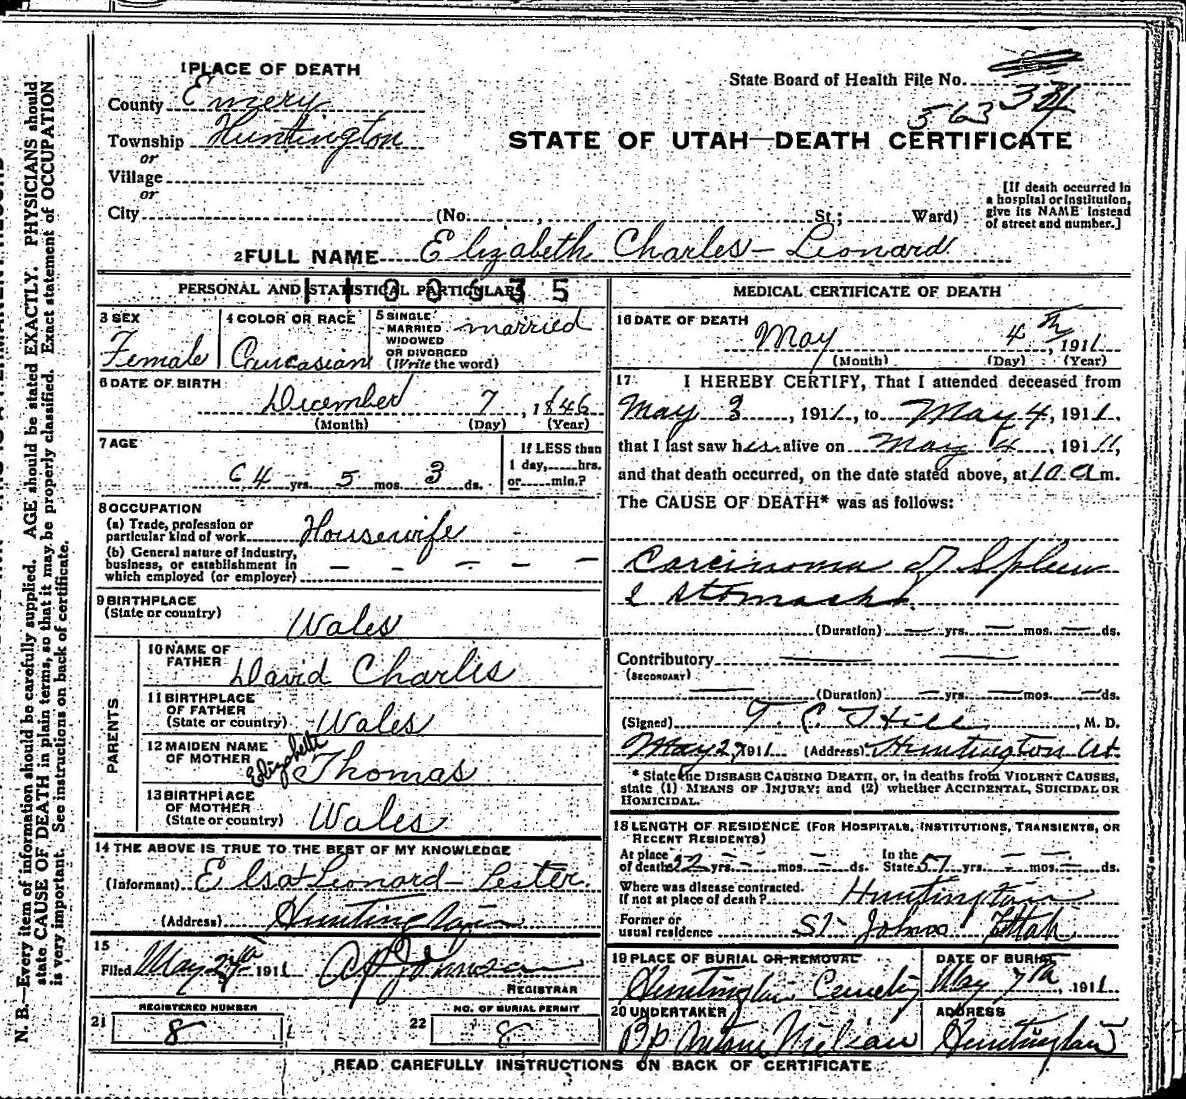 1 PLACE OF DEATH
County Emery
Township Huntington
or
Village
or
City (No. , St.; Ward)
State Board of Health File No.
563
STATE OF UTAH—DEATH CERTIFICATE
[If death occurred in
a hospital or institution,
give its NAME instead
of street and number.]
2 FULL NAME Elizabeth Charles - Leonard
PERSONAL AND STATISTICAL PARTICULARS
3 SEX
Female
4 COLOR OR RACE
Caucasian
5 SINGLE
MARRIED
WIDOWED
OR DIVORCED
(Write the word)
married
6 DATE OF BIRTH
December 7, 1846
(Month) (Day) (Year)
7 AGE
64 yrs. 5 mos. 3 ds.
If LESS than
1 day, hrs.
or min.?
8 OCCUPATION
(a) Trade, profession or
particular kind of work Housewife
(b) General nature of industry,
business, or establishment in
which employed (or employer)
9 BIRTHPLACE
(State or country)
Wales
PARENTS
10 NAME OF
FATHER
David Charles
11 BIRTHPLACE
OF FATHER
(State or country) Wales
12 MAIDEN NAME
OF MOTHER
Elizabeth Thomas
13 BIRTHPLACE
OF MOTHER
(State or country) Wales
14 THE ABOVE IS TRUE TO THE BEST OF MY KNOWLEDGE
(Informant) Elsa Leonard - Lester
(Address) Huntington
15
Filed May 27th 1911
Johnson
REGISTRAR
REGISTERED NUMBER
21 8
NO. OF BURIAL PERMIT
22 8
MEDICAL CERTIFICATE OF DEATH
16 DATE OF DEATH
May 4th, 1911
(Month) (Day) (Year)
17 I HEREBY CERTIFY, That I attended deceased from
May 3, 1911, to May 4, 1911,
that I last saw her alive on May 4, 1911,
and that death occurred, on the date stated above, at 10 a m.
The CAUSE OF DEATH* was as follows:
Carcinoma of Spleen
& Stomach.
(Duration) — yrs. — mos. — ds.
Contributory
(SECONDARY)
(Duration) — yrs. — mos. — ds.
(Signed) T. C. Hill M. D.
May 27, 1911 (Address) Huntington Ut.
* State the DISEASE CAUSING DEATH, or, in deaths from VIOLENT CAUSES,
state (1) MEANS OF INJURY; and (2) whether ACCIDENTAL, SUICIDAL OR
HOMICIDAL.
18 LENGTH OF RESIDENCE (FOR HOSPITALS, INSTITUTIONS, TRANSIENTS, OR
RECENT RESIDENTS)
At place
of death 22 yrs. — mos. — ds.
In the
State 51 yrs. — mos. — ds.
Where was disease contracted,
If not at place of death? Huntington
Former or
usual residence St Johns Utah
19 PLACE OF BURIAL OR REMOVAL
Huntington Cemetery
DATE OF BURIAL
May 7th, 1911
20 UNDERTAKER
Bp Nielsen
ADDRESS
Huntington
READ CAREFULLY INSTRUCTIONS ON BACK OF CERTIFICATE
N. B.—Every item of information should be carefully supplied. AGE should be stated EXACTLY. PHYSICIANS should
state CAUSE OF DEATH in plain terms, so that it may be properly classified. Exact statement of OCCUPATION
is very important. See instructions on back of certificate.